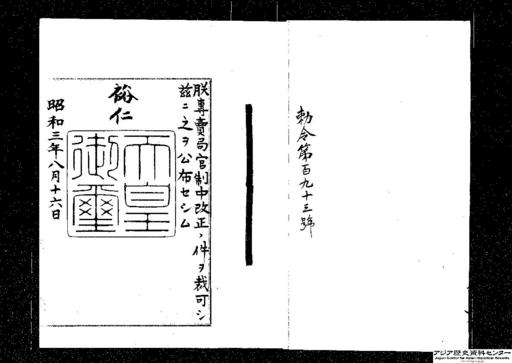 勅令第百九十三號
朕專賣局官制中改正ノ件ヲ裁可シ
茲ニ之ヲ公布セシム
裕仁
天皇
御璽
昭和三年八月十六日
アジア歴史資料センター
Japan Center for Asian Historical Records